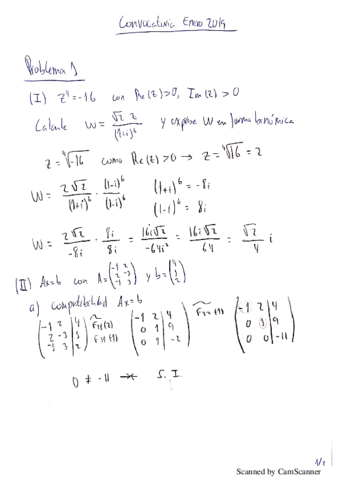 Convocatoria Enero 2019
Problema 1
(I) z⁴=-16 con Re(z)>0, Im(z)>0
Calcule w = √2 z / (1+i)⁶ y exprese w en forma binómica
z = ⁴√-16 como Re(z)>0 → z = ⁴√16 = 2
w = 2√2/(1+i)⁶ · (1-i)⁶/(1-i)⁶ (1+i)⁶ = -8i
(1-i)⁶ = 8i
w = 2√2/-8i · 8i/8i = 16i√2/-64i² = 16i√2/64 = √2/4 i
(II) Ax=b con A=(-1 2; 2 -3; -1 3) y b=(4; 1; 2)
a) Compatibilidad Ax=b
(-1 2 | 4; 2 -3 | 1; -1 3 | 2) F21(2) F31(-1) (-1 2 | 4; 0 1 | 9; 0 1 | -2) F32(-1) (-1 2 | 4; 0 1 | 9; 0 0 | -11)
0 ≠ -11 → S. I.
1/2
Scanned by CamScanner